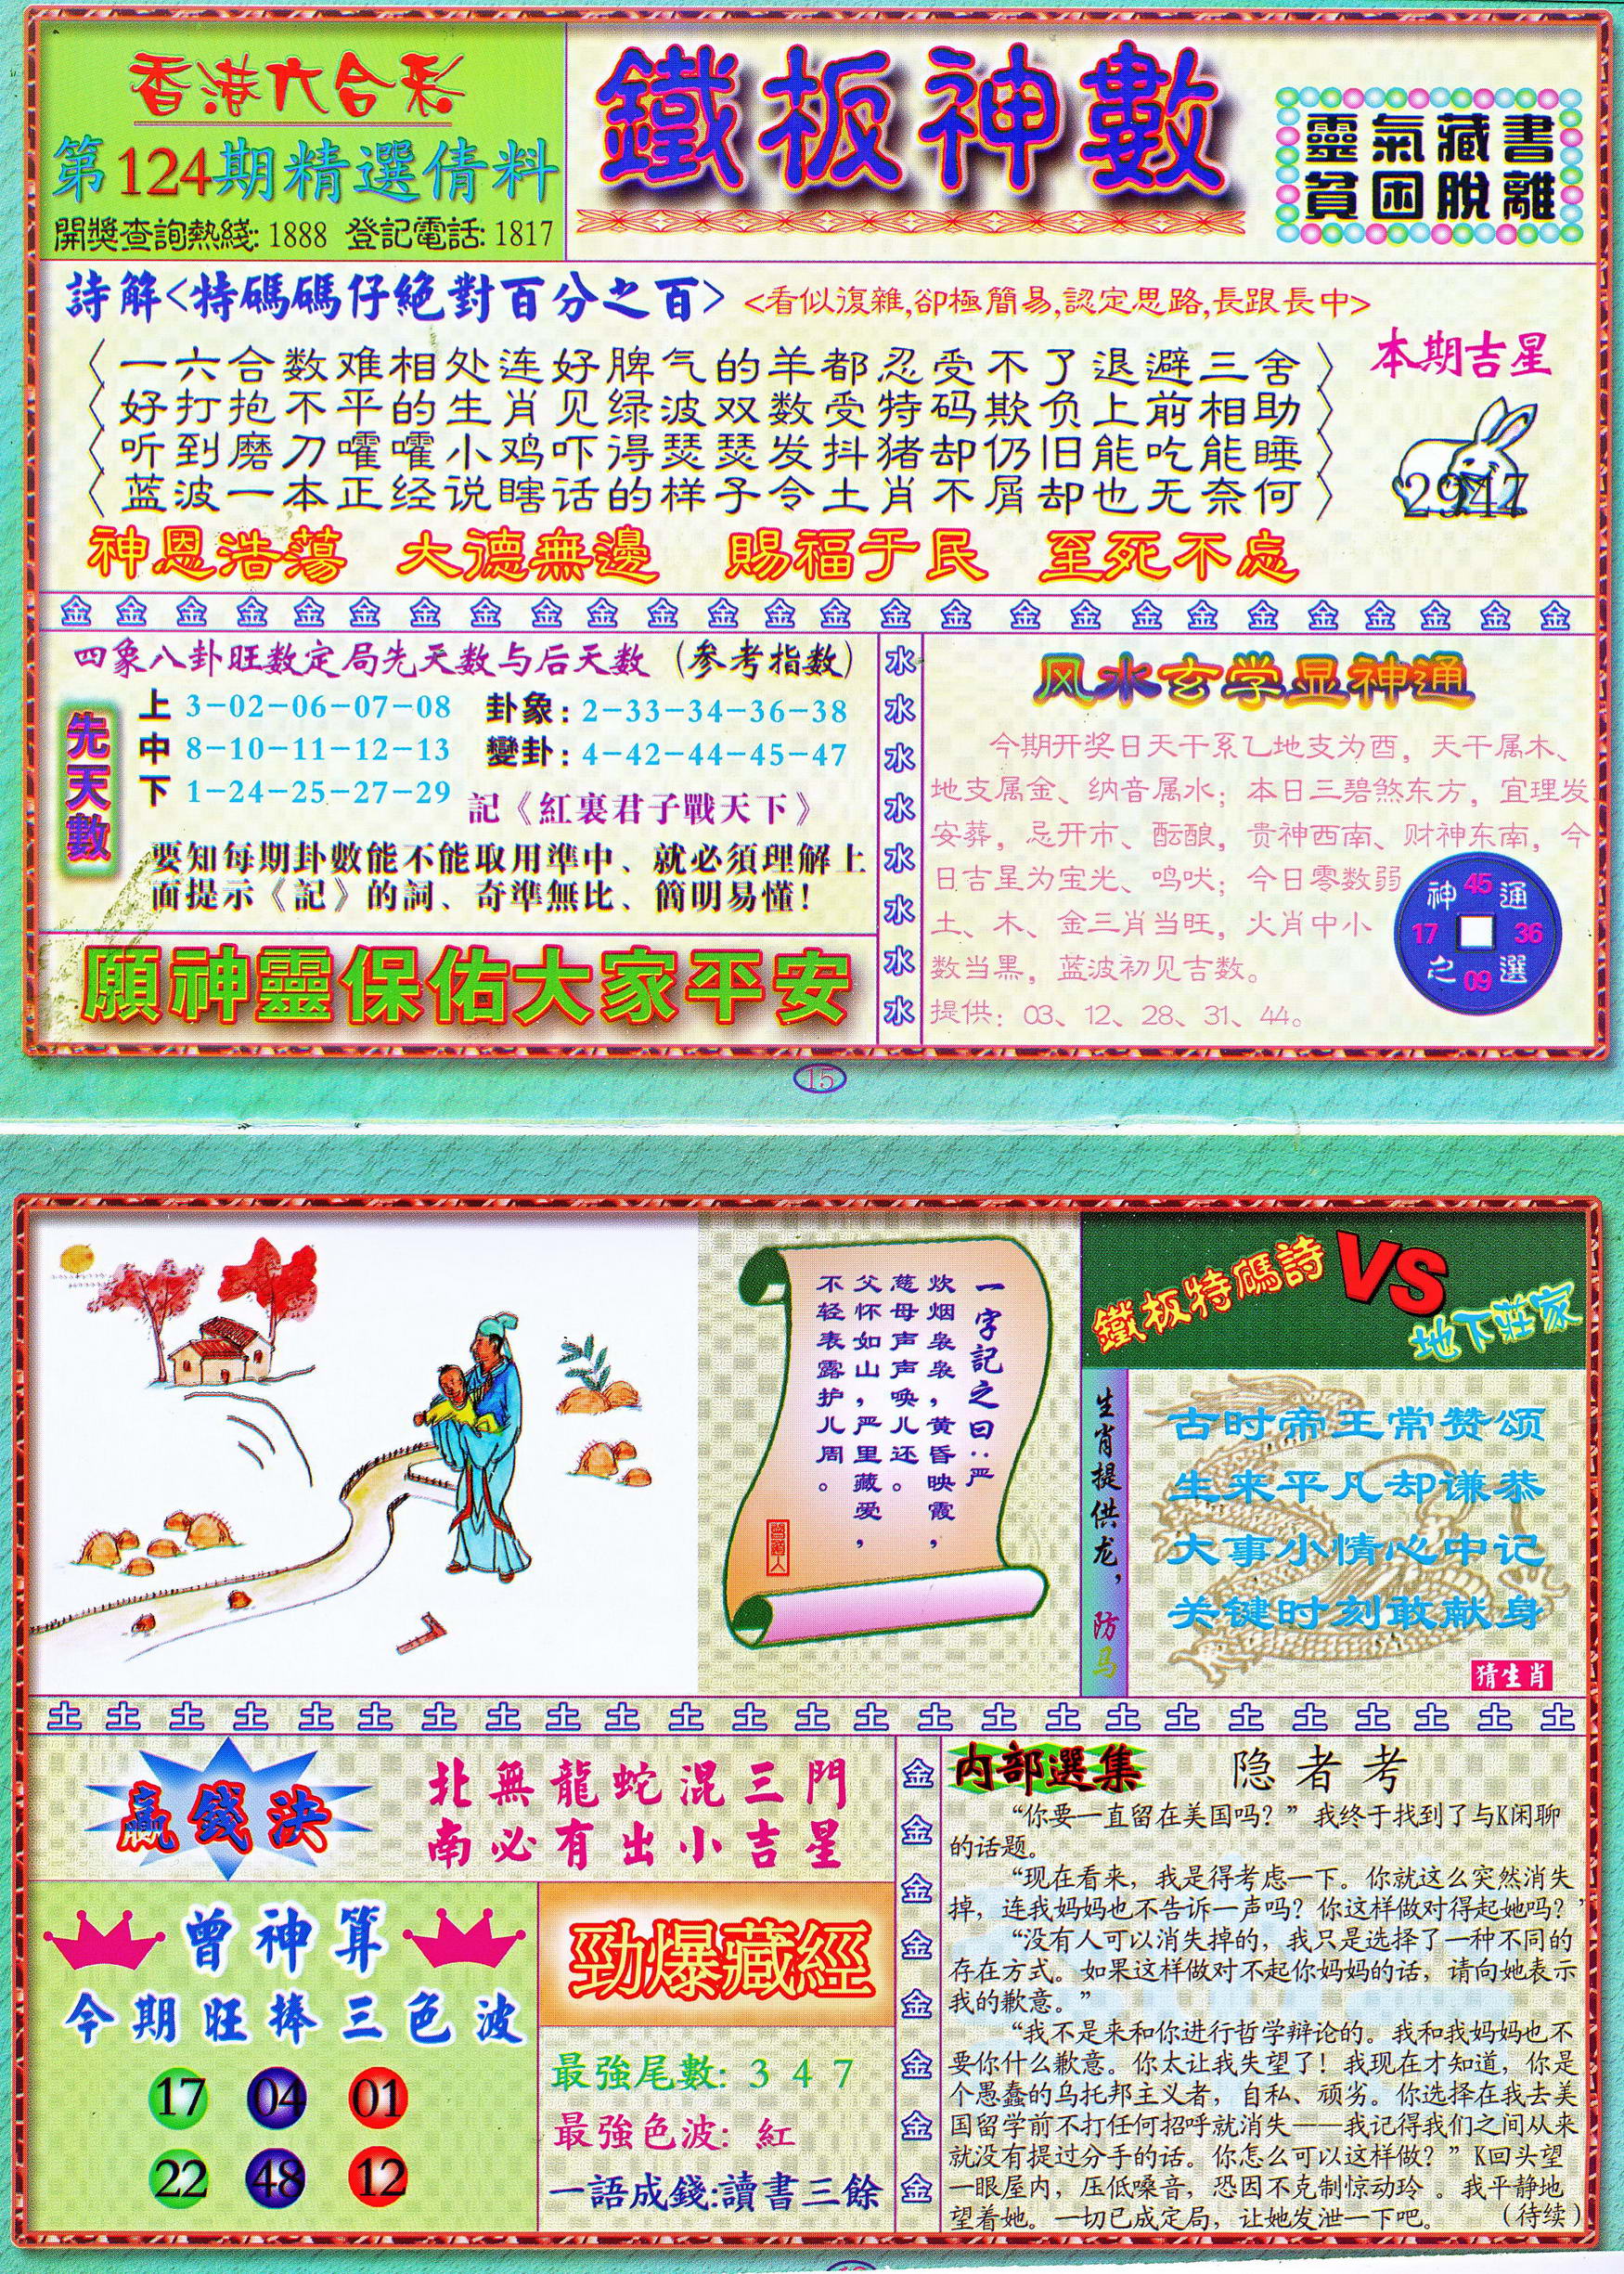 香港六合彩
第124期精選倩料
開獎查詢熱綫: 1888 登記電話: 1817
鐵板神數
靈氣藏書
貧困脫離
詩解<特碼碼仔絕對百分之百> <看似復雜,卻極簡易,認定思路,長跟長中>
一六合数难相处连好脾气的羊都忍受不了退避三舍
好打抱不平的生肖见绿波双数受特码欺负上前相助
听到磨刀嚯嚯小鸡吓得瑟瑟发抖猪却仍旧能吃能睡
蓝波一本正经说瞎话的样子令土肖不屑却也无奈何
本期吉星
2947
神恩浩蕩 大德無邊 賜福于民 至死不忘
金金金金金金金金金金金金金金金金金金金金金金金金金金
四象八卦旺数定局先天数与后天数 (参考指数)
先天數
上 3-02-06-07-08 卦象: 2-33-34-36-38
中 8-10-11-12-13 變卦: 4-42-44-45-47
下 1-24-25-27-29 記《紅裏君子戰天下》
要知每期卦數能不能取用準中、就必須理解上
面提示《記》的詞、奇準無比、簡明易懂!
願神靈保佑大家平安
水水水水水水水水
风水玄学显神通
今期开奖日天干系乙地支为酉，天干属木、
地支属金、纳音属水；本日三碧煞东方，宜理发
安葬，忌开市、酝酿，贵神西南、财神东南，今
日吉星为宝光、鸣吠；今日零数弱
土、木、金三肖当旺，火肖中小
数当黑，蓝波初见吉数。
提供：03、12、28、31、44。
神 45 通
17 36
之 09 選
15
一字記之曰：严
炊烟袅袅，黄昏映霞，
慈母声声唤儿还。
父怀如山，严里藏爱，
不轻表露护儿周。
曾道人
鐵板特碼詩 VS 地下莊家
生肖提供龙，防马
古时帝王常赞颂
生来平凡却谦恭
大事小情心中记
关键时刻敢献身
猜生肖
土土土土土土土土土土土土土土土土土土土土土土土土土
贏錢決
北無龍蛇混三門
南必有出小吉星
曾神算
今期旺捧三色波
17 04 01
22 48 12
勁爆藏經
最強尾數: 3 4 7
最強色波: 紅
一語成錢:讀書三餘
金金金金金金金金
内部選集 隐者考
“你要一直留在美国吗？”我终于找到了与K闲聊
的话题。
“现在看来，我是得考虑一下。你就这么突然消失
掉，连我妈妈也不告诉一声吗？你这样做对得起她吗？’
“没有人可以消失掉的，我只是选择了一种不同的
存在方式。如果这样做对不起你妈妈的话，请向她表示
我的歉意。”
“我不是来和你进行哲学辩论的。我和我妈妈也不
要你什么歉意。你太让我失望了！我现在才知道，你是
个愚蠢的乌托邦主义者，自私、顽劣。你选择在我去美
国留学前不打任何招呼就消失——我记得我们之间从来
就没有提过分手的话。你怎么可以这样做？”K回头望
一眼屋内，压低嗓音，恐因不克制惊动玲 。我平静地
望着她。一切已成定局，让她发泄一下吧。 （待续）